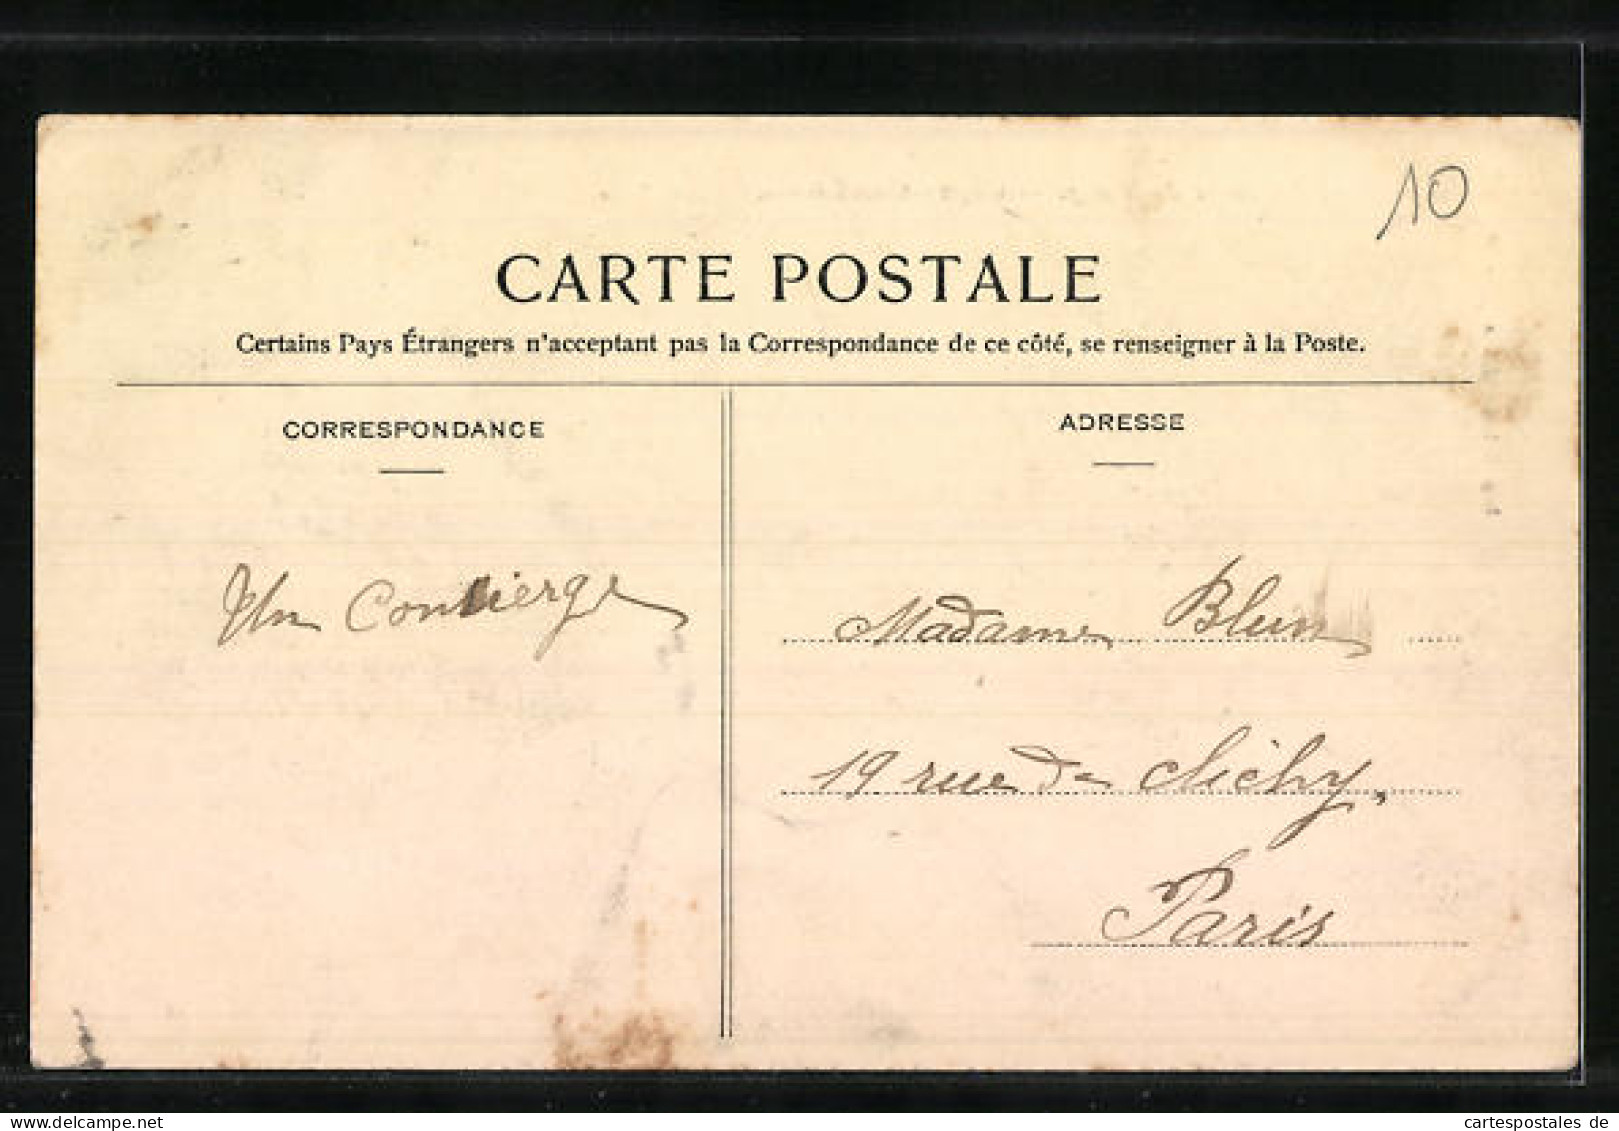 10
CARTE POSTALE
Certains Pays Étrangers n'acceptant pas la Correspondance de ce côté, se renseigner à la Poste.
CORRESPONDANCE
Un Concierge
ADRESSE
Madame Blum
19 rue de Clichy,
Paris
cartespostales de